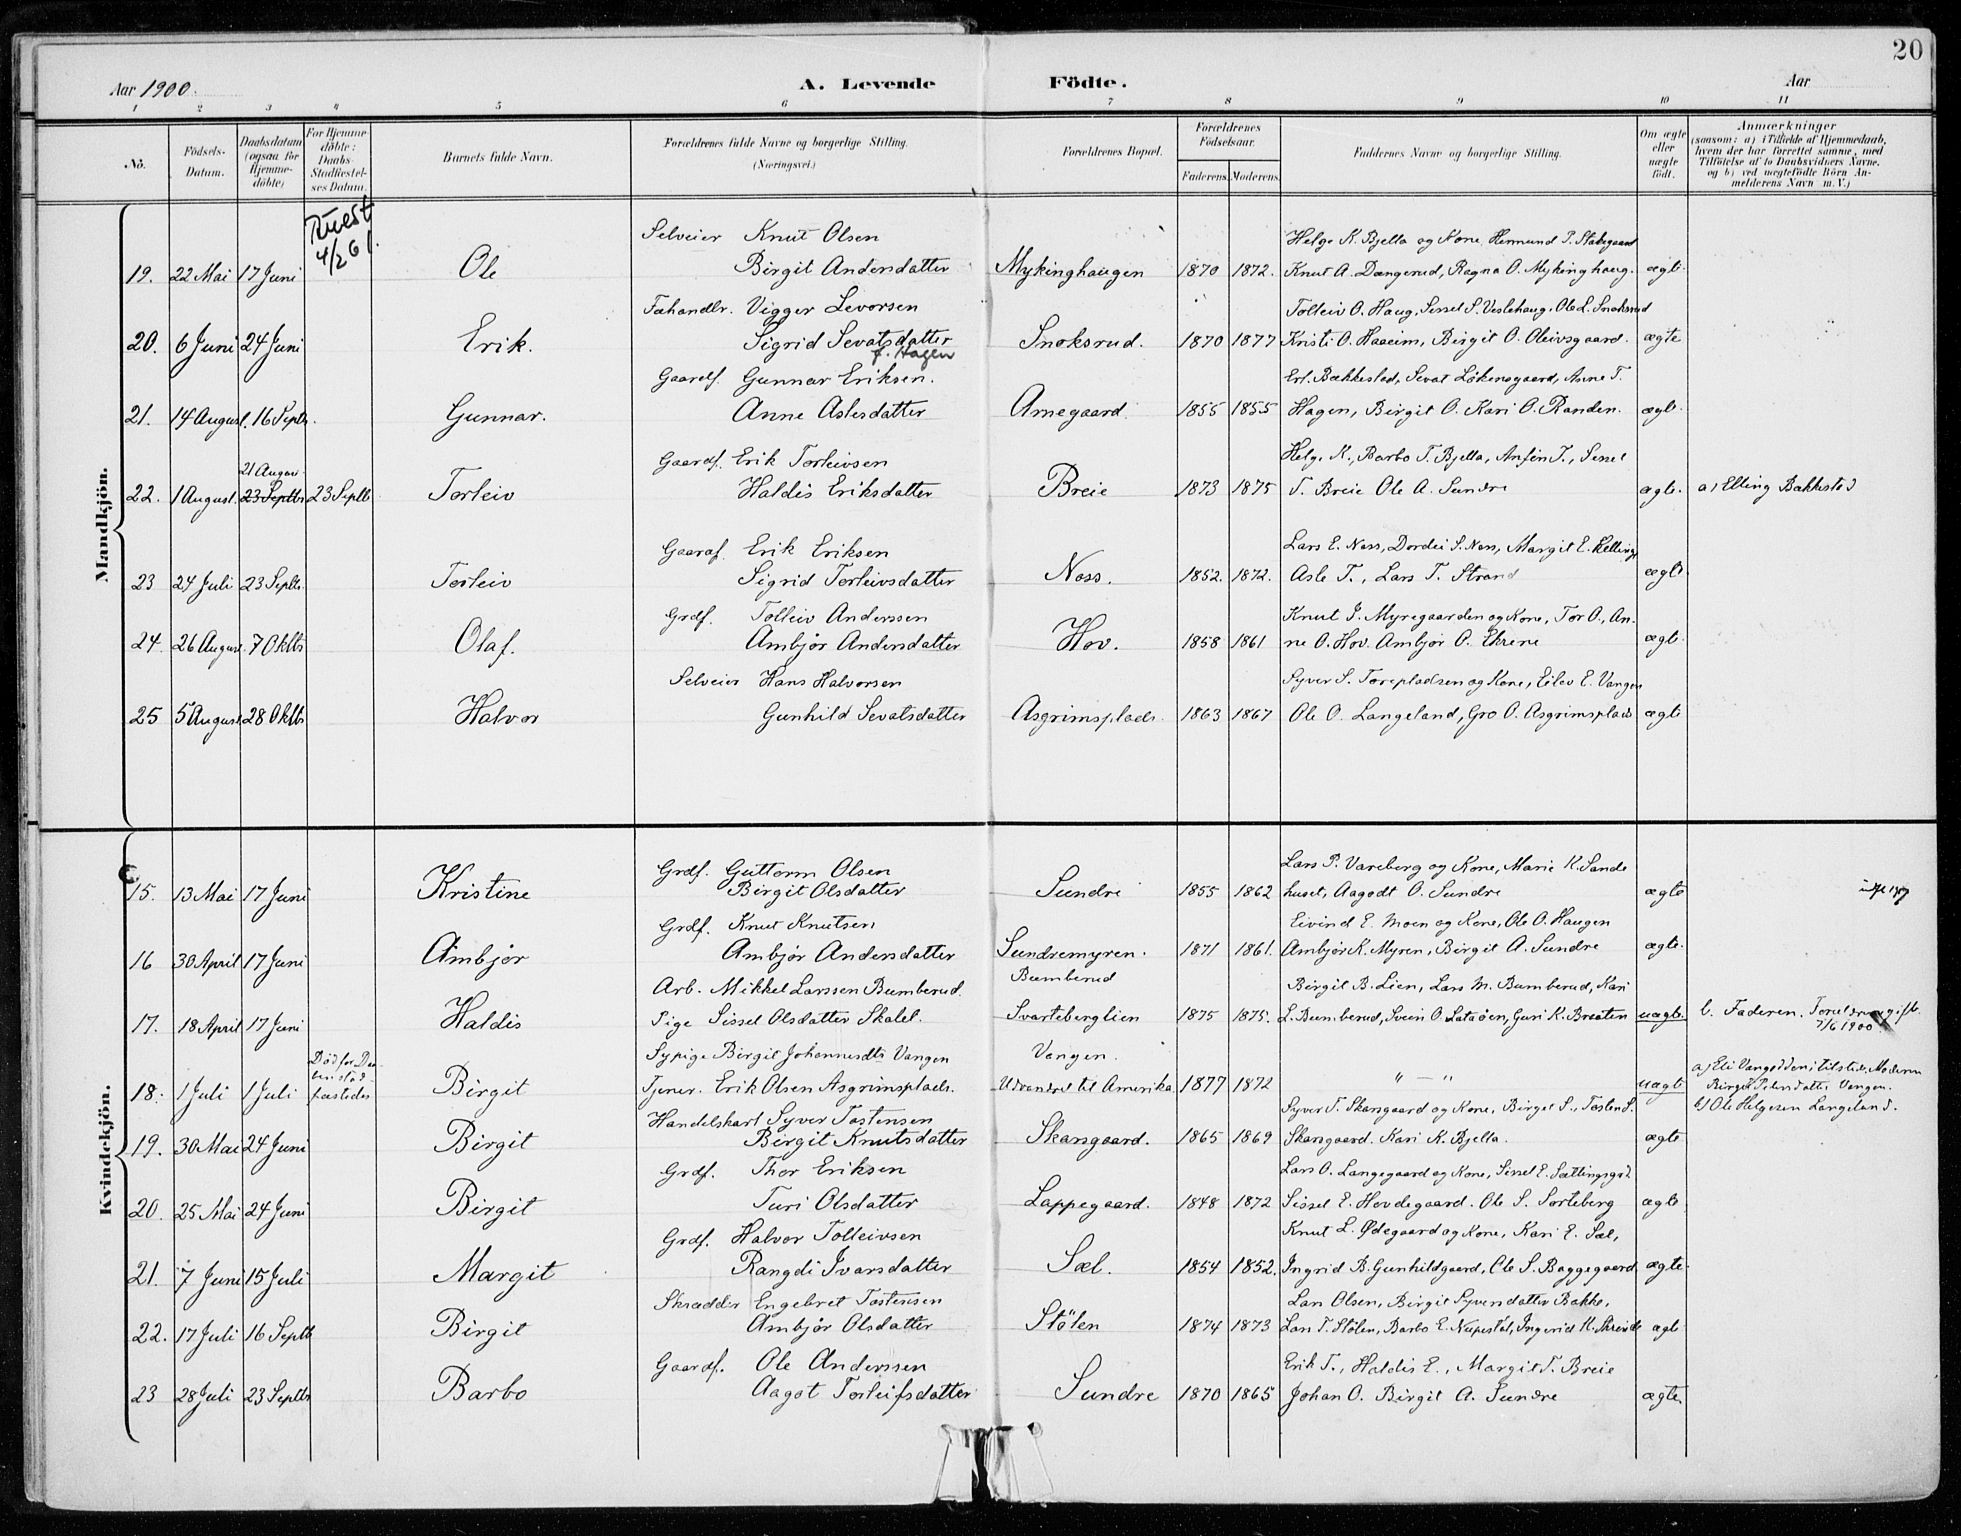 20
Aar 1900. A. Levende Födte. Aar
1 2 3 4 5 6 7 8 9 10 11
No. Födsels-Datum. Daabsdatum (ogsaa for Hjemmedöbte) For Hjemmedöbte: Daabs-Stadfæstelses Datum. Barnets fulde Navn. Forældrenes fulde Navne og borgerlige Stilling. (Næringsvei.) Forældrenes Bopæl. Forældrenes Födselsaar. Faderens. Moderens. Faddernes Navne og borgerlige Stilling. Om ægte eller uægte födt. Anmærkninger (saasom: a) i Tilfælde af Hjemmedaab, hvem der har forrettet samme, med Tilföielse af to Daabsvidners Navne, og b) ved uægtefödte Börn Anmelderens Navn m. V.)
Mandkjön.
4/2 61.
Selveier Knut Olsen Helge K. Bjella og Kone, Hermund P. Stakegaard
19. 22 Mai 17 Juni Ole Birgit Andersdatter Mykinghaugen 1870 1872. Knut A. Dængerud, Ragna O. Mykinghaug. ægte.
Fæhandlr. Vigger Levorsen Tolleiv O. Haug, Sissel S. Veslehaug, Ole L. Snoksrud
20. 6 Juni 24 Juni Erik. Sigrid Sevatsdatter Snoksrud. 1870 1877 Kristi O. Haaeim, Birgit O. Oleivsgaard. ægte
f. Hagen
Gaardf. Gunnar Eriksen. Erl. Bækkestad, Sevat Lökensgaard, Anne T.
21. 14 August. 16 Septb. Gunnar. Anne Aslesdatter Arnegaard 1855 1855 Hagen, Birgit O. Kari O. Randen. ægte.
21 August
Gaardf. Erik Torleivsen Helge K., Barbo T. Bjella, Anfin T., Sissel
22. 1 August. 23 Septbr 23 Septb Torleiv Haldis Eriksdatter Breie 1873 1875 T. Breie Ole A. Sundre ægte. a) Elling Bækkestad
Gaardf. Erik Eriksen Lars E. Noss, Dordei S. Noss, Margit E. Felling
23 24 Juli 23 Septb. Torleiv Sigrid Torleivsdatter Noss. 1852. 1872. Asle T., Lars T. Strand ægte
Grdf. Tolleiv Anderssen Knut J. Myregaarden og Kone, Tor O., An-
24. 26 August. 7 Oktb Olaf. Ambjør Andersdatter Hov. 1858 1861 ne O. Hov. Ambjør O. Ekrene ægte.
Selveier Hans Halvorsen Syver S. Torepladsen og Kone, Eilev E. Vangen
25 5 August. 28 Oktb Halvor Gunhild Sevatsdatter Asgrimsplads. 1863 1867 Ole O. Langeland, Gro O. Asgrimsplads ægte
Kvindekjön.
Grdf. Guttorm Olsen Lars P. Vareberg og Kone, Marie K. Sande
15. 13 Mai 17 Juni Kristine Birgit Olsdatter Sundre 1855 1862 huset, Aagodt O. Sundre ægte
Grdf. Knut Knutsen Eivind E. Moen og Kone, Ole O. Haugen
16 30 April 17 Juni Ambjør Ambjør Andersdatter Sundremyren. 1871 1861. Ambjør K. Myren, Birgit A. Sundre ægte.
Arb. Mikkel Larssen Bumberud. Bumberud Birgit B. Lien, Lars M. Bumberud, Kari
17. 18 April 17 Juni Haldis Pige Sissel Olsdatter Skalet. Svarteberglien 1875 1875. L. Bumberud, Svein O. Lataøen, Guri K. Braaten uægte. b. Faderen.
7/6 1900
Død før Daa-
Sypige Birgit Johannesdtr Vangen Vangen. a) Eli Vangodden; tilstede, Moderen
18. 1 Juli 1 Juli fæstedes Birgit Tjener. Erik Olsen Asgrimsplads. Udvandret til Amerika 1877 1872 " — " uægte Birgit Vangen.
b) Ole Helgesen Langeland.
Handelskarl Syver Tostensen Syver T. Skarsgaard og Kone, Birget S., Tosten S.
19. 30 Mai 24 Juni Birgit Birgit Knutsdatter Skarsgaard. 1865 1869 Skarsgaard. Kari K. Bjella. ægte
Grdf. Thor Eriksen Lars O. Langegaard og Kone, Sissel E. Sætlingsgrd.
20. 25 Mai 24 Juni Birgit Turi Olsdatter Lappegaard. 1848 1872 Sissel E. Hovdegaard. Ole S. Sorteberg ægte
Grdf. Halvor Tolleivsen Knut L. Ødegaard og Kone, Kari E. Sæl,
21. 7 Juni 15 Juli Margit Rangdi Ivarsdatter Sæl. 1854 1852. Ingrid B. Gunhildgaard, Ole S. Baggegaard ægte.
Skrædder Engebret Tostensen Lars Olsen, Birgit Syversdatter Bakke,
22. 17 Juli 16 Septb Birgit Ambjør Olsdatter Stölen 1874 1873 Lars T. Stölen, Barbo E. Nupestöl, Ingerid K. ægte
Gaardf. Ole Anderssen Erik T., Haldis E., Margit T. Breie
23 28 Juli 23 Septbr Barbo Aagot Torleifsdatter Sundre 1870 1865 Johan O. Birgit A. Sundre ægte